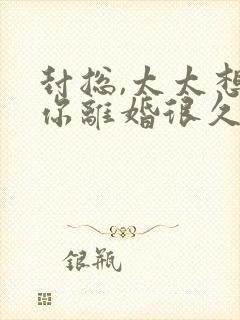 封总,太太想
你離婚很久
银瓶